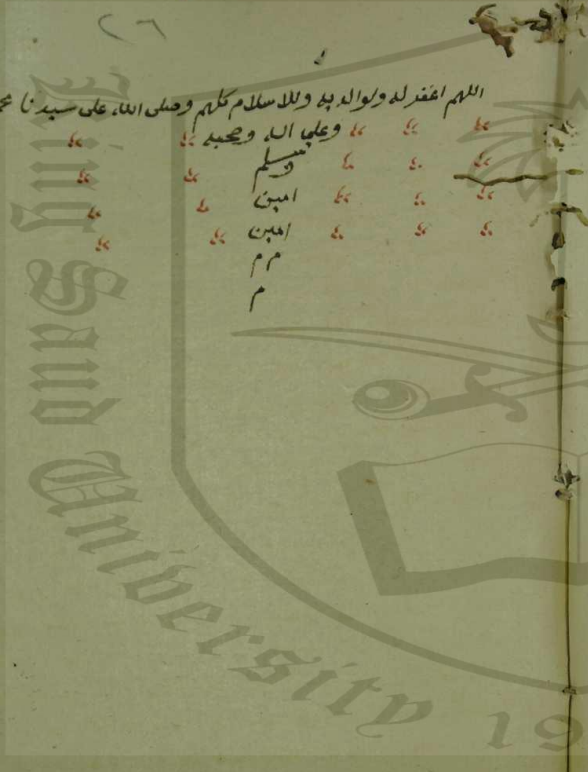 ٢٦
اللهم اغفر له ولوالديه وللاسلام كلهم وصلى الله على سيدنا مح
وعلى اله وصحبه
وسلم
امين
امين
م م
م
King Saud University 19